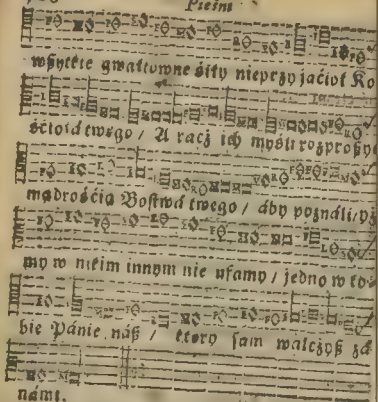 Pieśni
wszytkie gwałtowne siły nieprzyjaciół Ko
ścioła twego / A racz ich myśli rozproszyć
mądrością Bostwa twego / aby poználi / yż
my w nikim innym nie ufamy / jedno w to-
bie Pánie náß / ktory sam walczyß zá
námi.